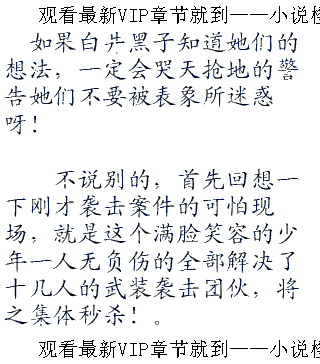 观看最新VIP章节就到——小说检
如果白井黑子知道她们的
想法，一定会哭天抢地的警
告她们不要被表象所迷惑
呀！
不说别的，首先回想一
下刚才袭击案件的可怕现
场，就是这个满脸笑容的少
年一人无负伤的全部解决了
十几人的武装袭击团伙，将
之集体秒杀！。
观看最新VIP章节就到——小说检